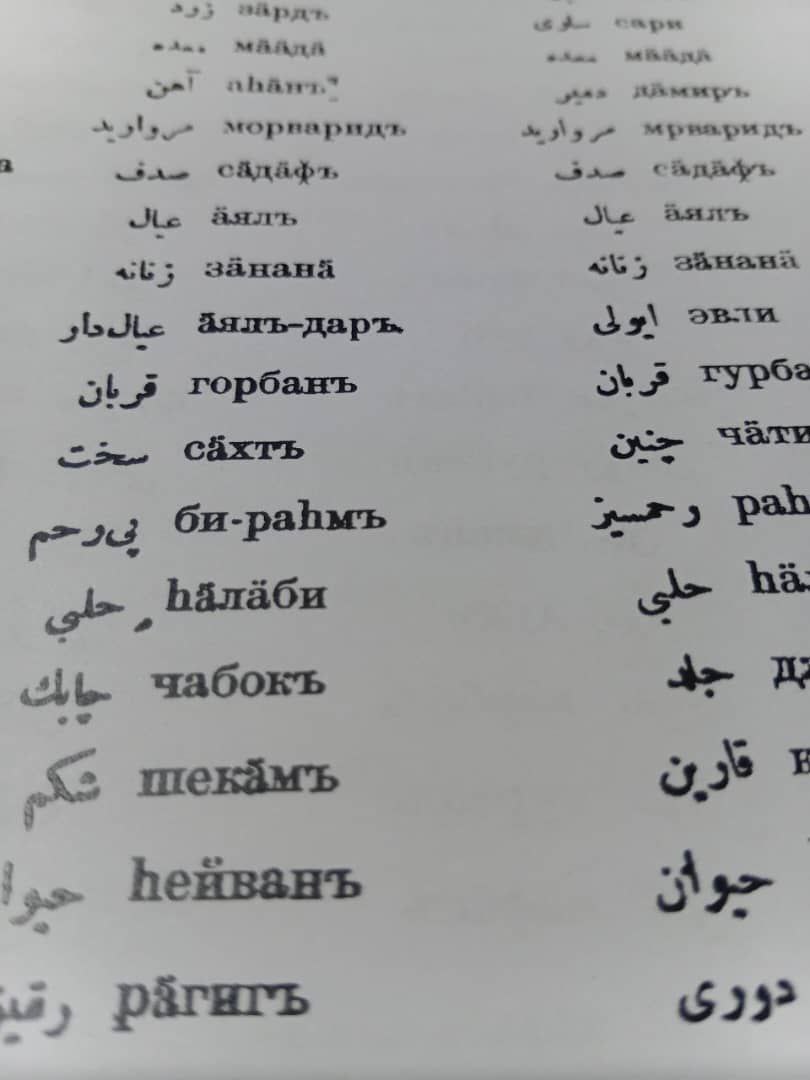 زرد зӓрдъ ساری сари
معده мӓӓдӓ معده мӓӓдӓ
آهن аһӓнъ دمیر дӓмиръ
مرواريد морваридъ مرواريد мрваридъ
صدف сӓдӓфъ صدف сӓдӓфъ
عيال ӓялъ عيال ӓялъ
زنانه зӓнанӓ زنانه зӓнанӓ
عيال‌دار ӓялъ-даръ. ايولى эвли
قربان горбанъ قربان гурба
سخت сӓхтъ چتين чӓти
بی‌رحم би-раһмъ رحمسيز раһ
حلبي һӓлӓби حلبي һӓ
چابك чабокъ جلد
شكم шекӓмъ قارين
һейванъ حيوان
рӓгигъ دورى